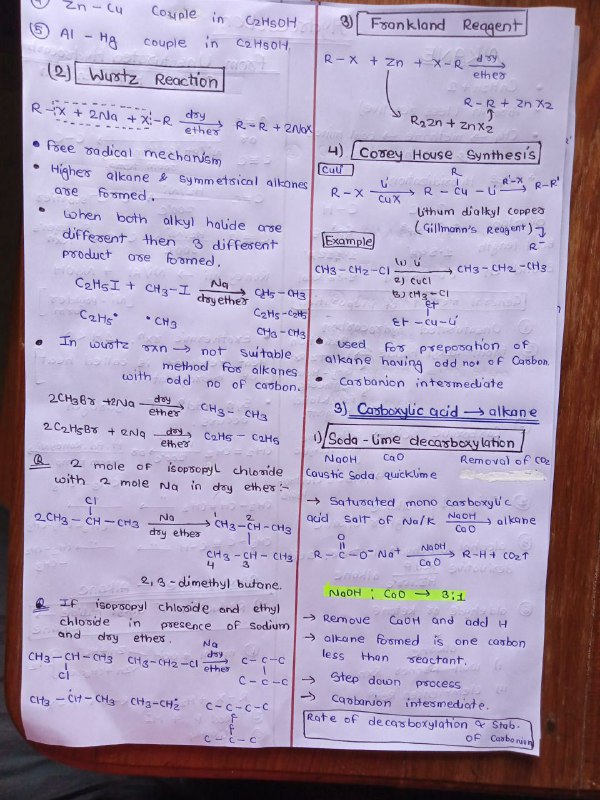 4) Zn - Cu Couple in C2H5OH
⑤ Al - Hg couple in C2H5OH
(2) Wurtz Reaction
R-X + 2Na + X-R dry ether → R-R + 2NaX
• Free radical mechanism
• Higher alkane & symmetrical alkanes
are formed.
• when both alkyl halide are
different then 3 different
product are formed.
C2H5I + CH3-I Na dry ether → C2H5-CH3
C2H5-C2H5
C2H5• •CH3
CH3-CH3
• In wurtz rxn → not suitable
method for alkanes
with odd no of carbon.
2CH3Br + 2Na dry ether → CH3 - CH3
2C2H5Br + 2Na dry ether → C2H5 - C2H5
Q 2 mole of isopropyl chloride
with 2 mole Na in dry ether:-
Cl
2CH3 - CH - CH3 Na dry ether → 1 CH3 - 2 CH - CH3
CH3 - CH - CH3
4 3
2,3-dimethyl butane.
Q If isopropyl chloride and ethyl
chloride in presence of sodium
and dry ether.
CH3-CH-CH3 CH3-CH2-Cl Na dry ether → C-C-C
Cl
C-C-C
CH3 - CH - CH3 CH3-CH2• C-C-C-C
C-C-C
3) Frankland Reagent
R-X + Zn + X-R dry ether →
R-R + ZnX2
R2Zn + ZnX2
4) Corey House Synthesis
CuLi
R
R-X Li CuX → R - Cu - Li R'-X → R-R'
lithum dialkyl copper
(Gillmann's Reagent)
R-
Example
CH3-CH2-Cl 1) Li 2) CuCl 3) CH3-Cl → CH3-CH2-CH3
Et
Et - Cu - Li
• used for preporation of
alkane having odd no. of Carbon.
• Carbanion intermediate
3) Carboxylic acid → alkane
1) Soda-lime decarboxylation
NaOH CaO Removal of CO2
Caustic Soda quicklime
→ Saturated mono carboxylic
acid salt of Na/K NaOH CaO → alkane
O
R - C - O- Na+ NaOH CaO → R-H + CO2↑
NaOH : CaO → 3:1
→ Remove CaOH and add H
→ alkane formed is one carbon
less than reactant.
→ Step down process
→ Carbanion intermediate.
Rate of decarboxylation ∝ Stab.
of Carbanion